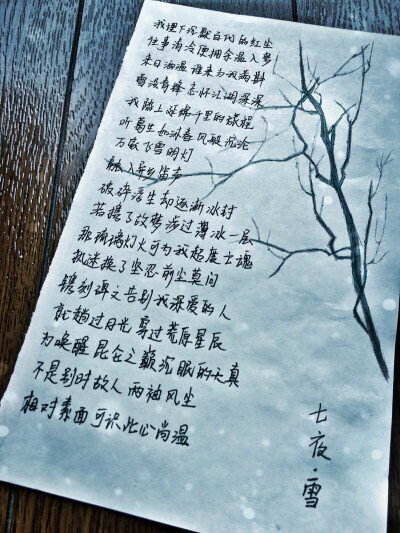 我埋下沉默自代的红尘
往事清冷便拥余温入梦
来日浊温谁来为我满斟
雪没有锋忘怀江湖深深
我踏上绵绵千里的旅程
听葛生如沐春风般沉沦
万家飞雪明灯
融入异乡笛声
破碎浮生却逐渐冰封
若提了故梦涉过薄冰一层
那琉璃灯火可为我超度亡魂
执迷换了坚忍前尘莫问
镌刻碑文告别我深爱的人
就趟过月光穿过荒原星辰
为唤醒昆仑之巅沉眠的天真
不是别时故人两袖风尘
相对素面可识此心尚温
七夜·雪